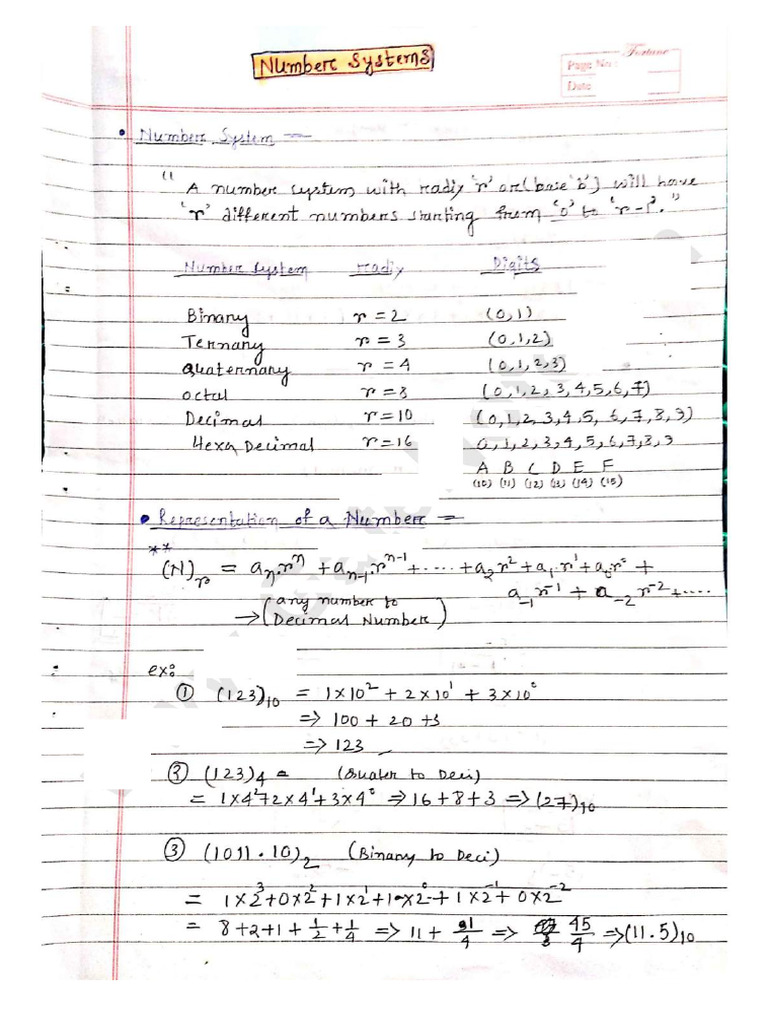 Number Systems
Fortune
Page No:
Date
• Number System =
" A number system with radix 'r' or (base 'b') will have
'r' different numbers starting from '0' to 'r-1'."
Number System radix Digits
Binary r = 2 (0,1)
Ternary r = 3 (0,1,2)
quaternary r = 4 (0,1,2,3)
octal r = 8 (0,1,2,3,4,5,6,7)
Decimal r = 10 (0,1,2,3,4,5,6,7,8,9)
Hexa Decimal r = 16 0,1,2,3,4,5,6,7,8,9
A B C D E F
(10) (11) (12) (13) (14) (15)
• Representation of a Number =
**
(N)r = aₙrⁿ + aₙ₋₁rⁿ⁻¹ + .... + a₂r² + a₁r¹ + a₀r⁰ +
a₋₁r⁻¹ + a₋₂r⁻² + ....
→ (any number to
Decimal Number)
ex:
① (123)₁₀ = 1×10² + 2×10¹ + 3×10⁰
⇒ 100 + 20 + 3
⇒ 123
② (123)₄ = (Quater to Deci)
= 1×4²+2×4¹+3×4⁰ ⇒ 16+8+3 ⇒ (27)₁₀
③ (1011.10)₂ (Binary to Deci)
= 1×2³+0×2²+1×2¹+1×2⁰+1×2⁻¹+0×2⁻²
= 8+2+1+1/2+1/4 ⇒ 11+1/4 ⇒ 45/4 ⇒ (11.5)₁₀